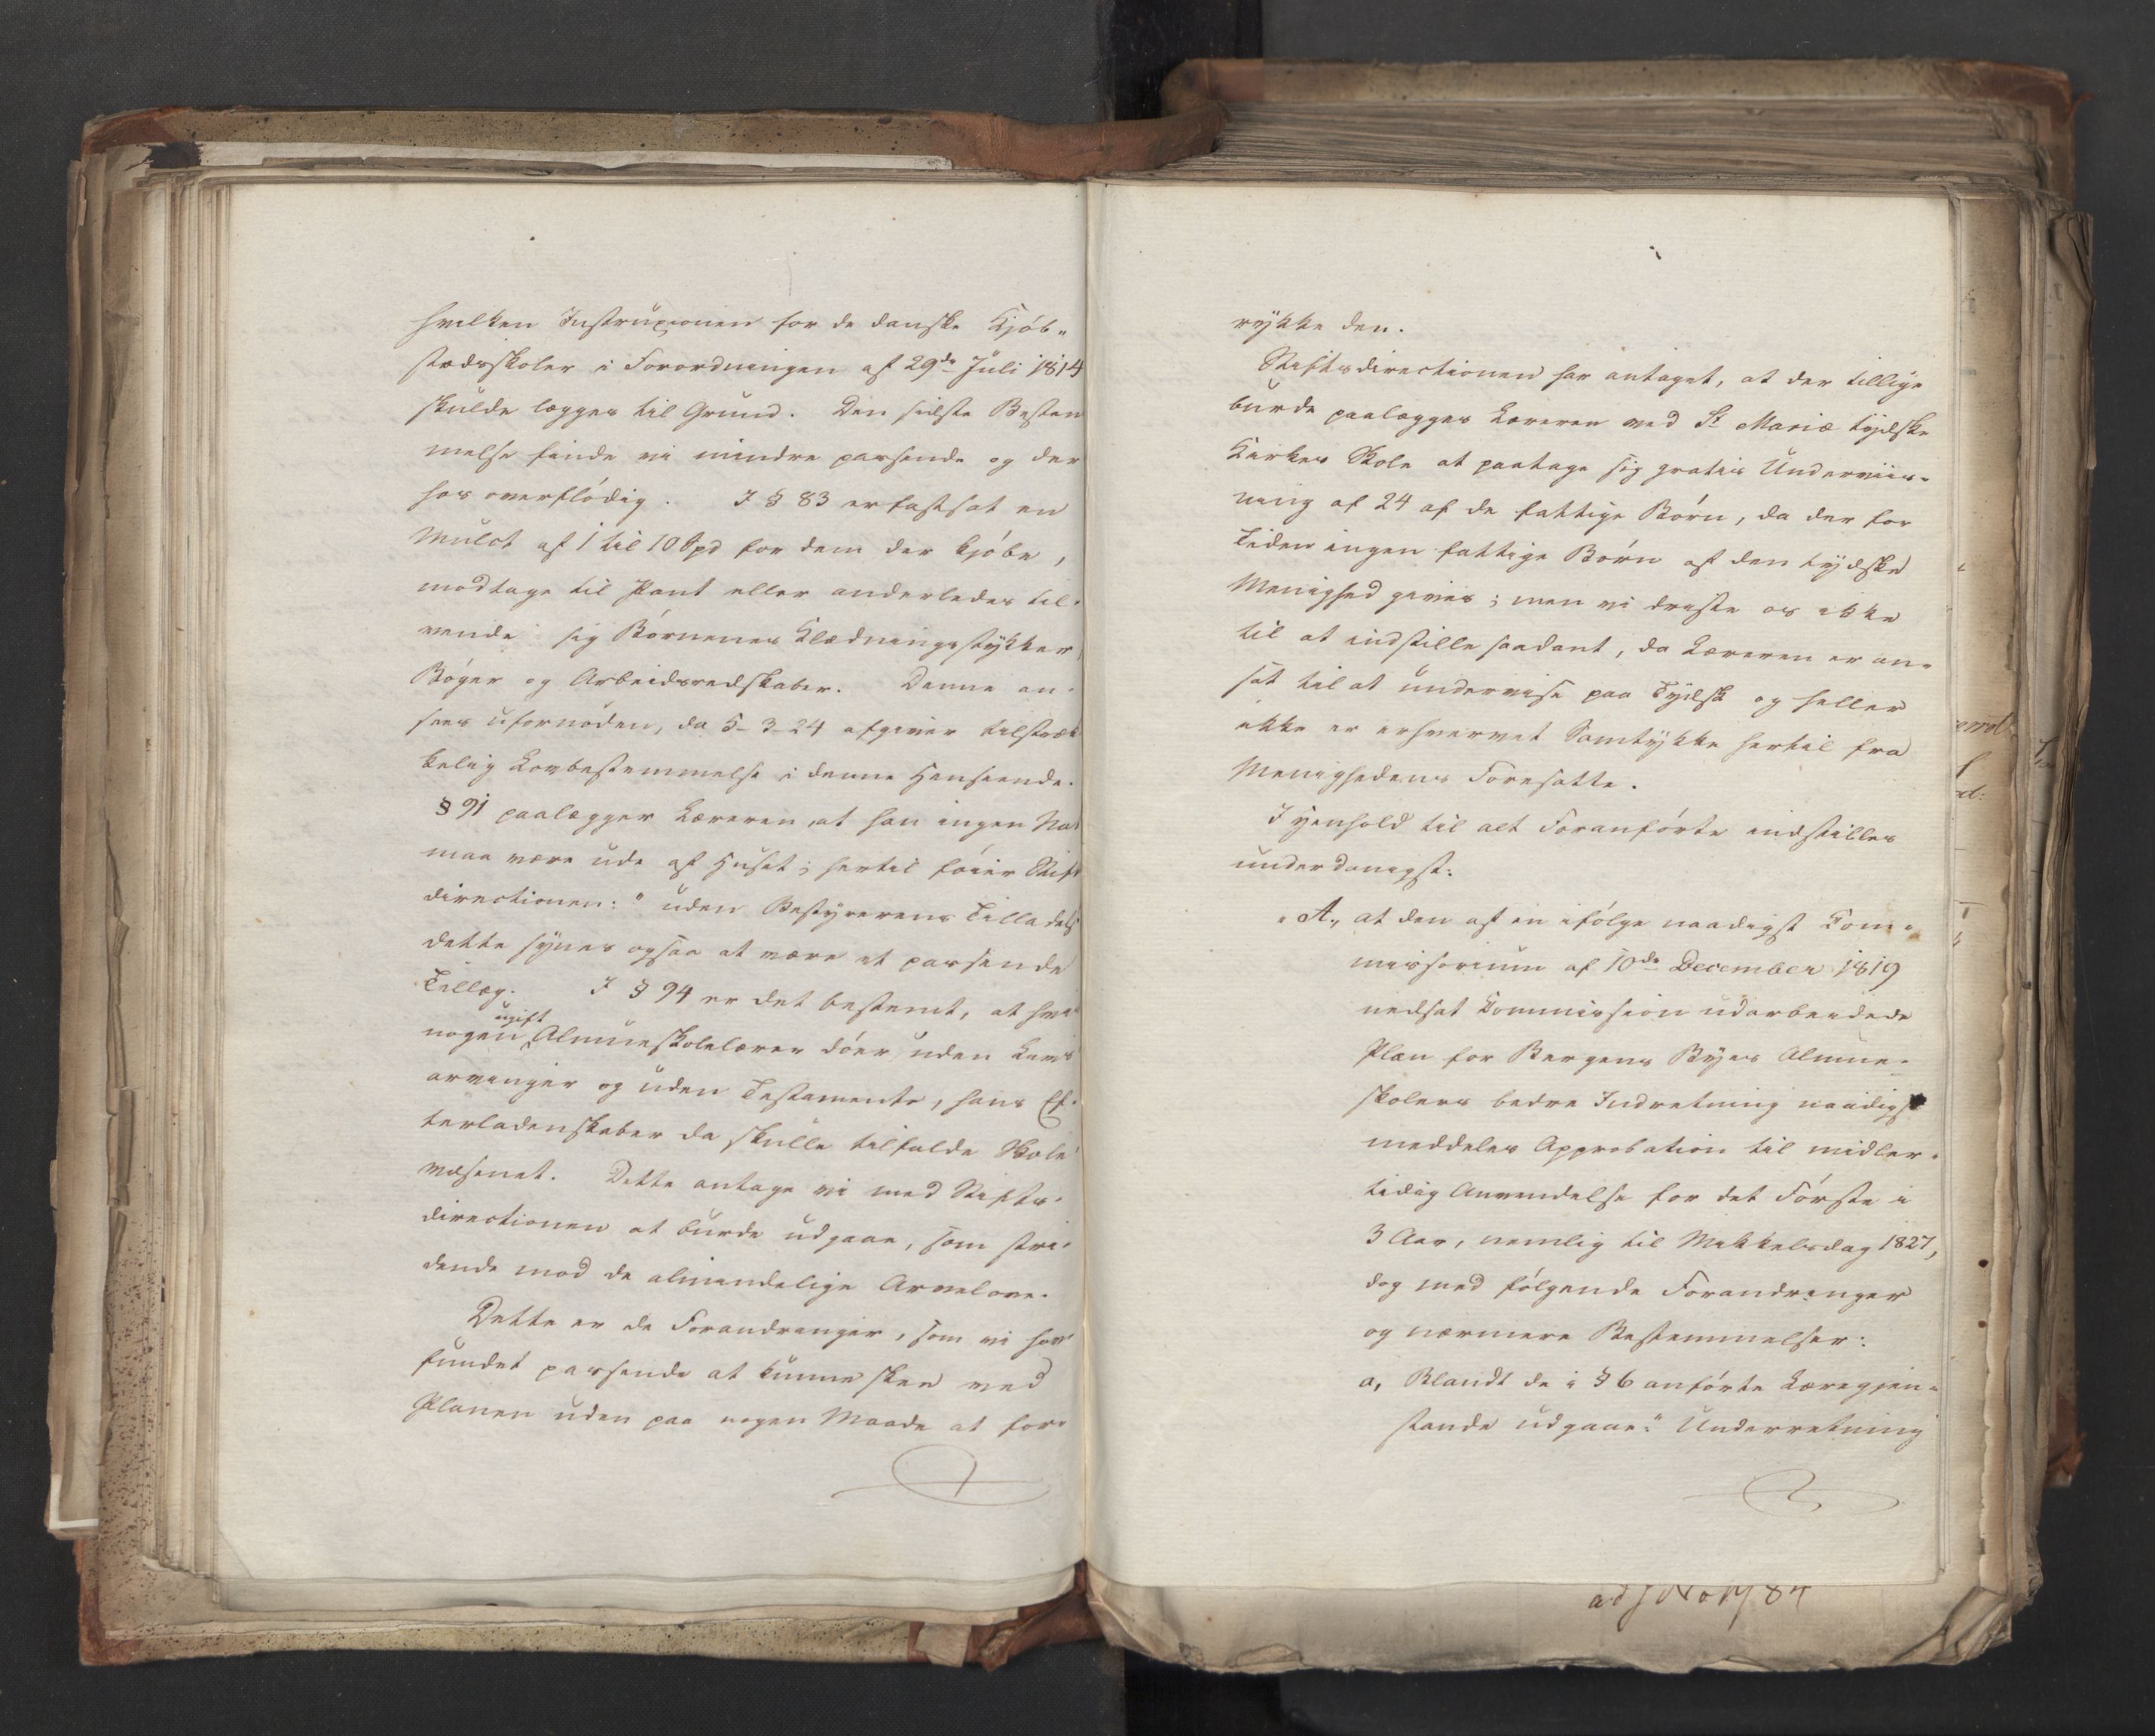 hvilken Instruxionen for de danske Kjöb-
stædsskoler i Forordningen af 29de Juli 1814
skulde lægges til Grund. Den sidste Bestem
melse finde vi mindre passende og der
hos overflödig. I § 83 er fastsat en
Mulct af 1 til 10 Spd for dem der kjöbe,
modtage til Pant eller anderledes til-
vende sig Börnenes Klædningsstykker,
Böger og Arbeidsredskaber. Denne an-
sees ufornöden, da 5-3-24 afgiver tilstræk
kelig Lovbestemmelse i denne Henseende.
§ 91 paalægger Læreren, at han ingen Nat
maa være ude af Huset; hertil föier Stift
directionen: " uden Bestyrerens Tilladels
dette synes ogsaa at være et passende
Tillæg. I § 94 er det bestemt, at hvis
ugift
nogen Almueskolelærer döer uden Livs
arvinger og uden Testamente, hans Ef-
terladenskaber da skulle tilfalde Skole
væsenet. Dette antage vi med Stifts-
directionen at burde udgaae, som stri-
dende mod de almindelige Arvelove.
Dette er de Forandringer, som vi have
fundet passende at kunne skee ved
Planen uden paa nogen Maade at for-
rykke den.
Stiftsdirectionen har antaget, at der tillige
burde paalægges Læreren ved St Mariæ tydske
Kirkes Skole at paatage sig gratis Underviis-
ning af 24 af de fattige Börn, da der for
Tiden ingen fattige Börn af den tydske
Menighed gives; men vi driste os ikke
til at indstille saadant, da Læreren er an-
sat til at undervise paa Tydsk og heller
ikke er erhvervet Samtykke hertil fra
Menighedens Foresatte.
I Henhold til alt Foranförte indstilles
underdanigst:
"A., at den af en ifölge naadigst Com-
missorium af 10de December 1819
nedsat Commission udarbeidede
Plan for Bergens Byes Almue-
skolers bedre Indretning naadigst
meddeles Approbation til midler-
tidig Anvendelse for det Förste i
3 Aar, nemlig til Mikkelsdag 1827,
dog med fölgende Forandringer
og nærmere Bestemmelser:
a, Blandt de i § 6 anförte Læregjen-
stande udgaae: " Underretning